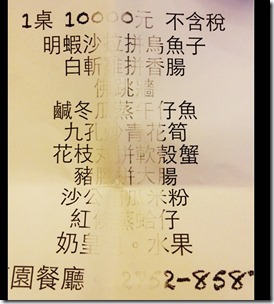 1桌 10000元 不含稅
明蝦沙拉拼烏魚子
白斬雞拼香腸
佛跳牆
鹹冬瓜蒸午仔魚
九孔 青花筍
花枝丸拼軟殼蟹
豬 拼大腸
沙公 瓜米粉
紅 蒸蛤仔
奶皇 。水果
園餐廳 2752-858